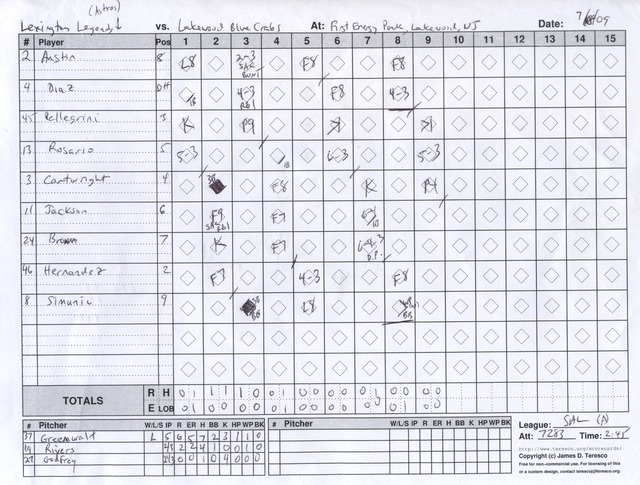 (Astros)
Lexington Legends vs. Lakewood BlueClaws At: First Energy Park, Lakewood, NJ Date: 7/8/09
# Player Pos 1 2 3 4 5 6 7 8 9 10 11 12 13 14 15
2 Austin 8 L8 2-3 SAC BUNT F8 F8
4 Diaz DH 4-3 RBI F8 4-3
45 Pellegrini 3 K P9 K K
13 Rosario 5 5-3 6-3 5-3
3 Cartwright 4 F8 K P4
11 Jackson 6 F9 SAC RBI F7
24 Brown 7 K F7 6-4-3 D.P.
46 Hernandez 2 F7 4-3 F8
8 Simunic 9 BB L8 BB
TOTALS R H 0 1 1 1 1 0 0 1 0 0 0 0 0 1 0 0 0 0
E LOB 0 1 0 0 0 0 0 1 0 0 0 0 0 0 0 1 0 0
# Pitcher W/L/S IP R ER H BB K HP WP BK # Pitcher W/L/S IP R ER H BB K HP WP BK
37 Greenwalt L 5 6 5 7 2 3 1 1 0
19 Rivers 2 2 4 1 0 0 1 0
27 Godfrey 0 0 1 0 4 0 0 0
League: SAL (A)
Att: 7283 Time: 2:45
http://www.teresco.org/scorecards/
Copyright (c) James D. Teresco
Free for non-commercial use. For licensing of this
or a custom design, contact terescoj@teresco.org.